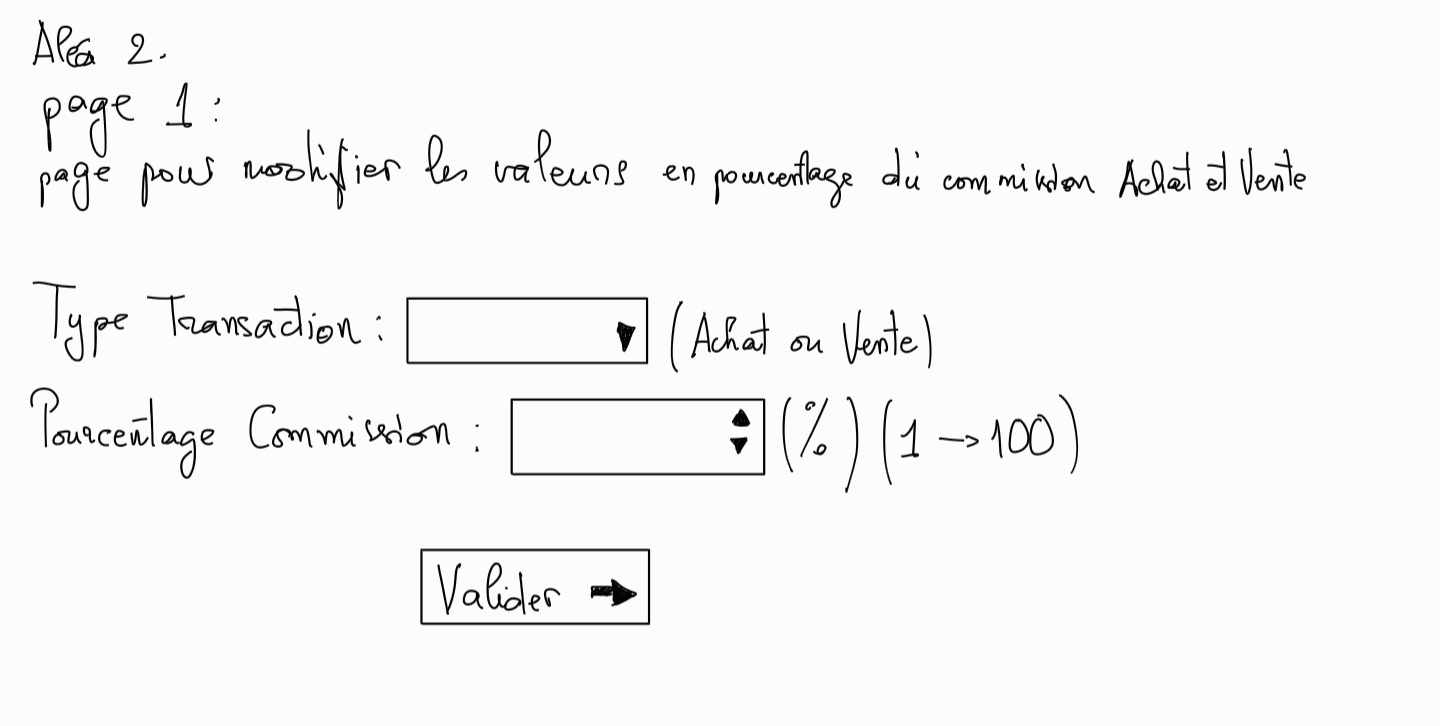 Aléa 2.
page 1 :
page pour modifier les valeurs en pourcentage du commission Achat et Vente
Type Transaction : (Achat ou Vente)
Pourcentage Commission : (%) (1 → 100)
Valider →